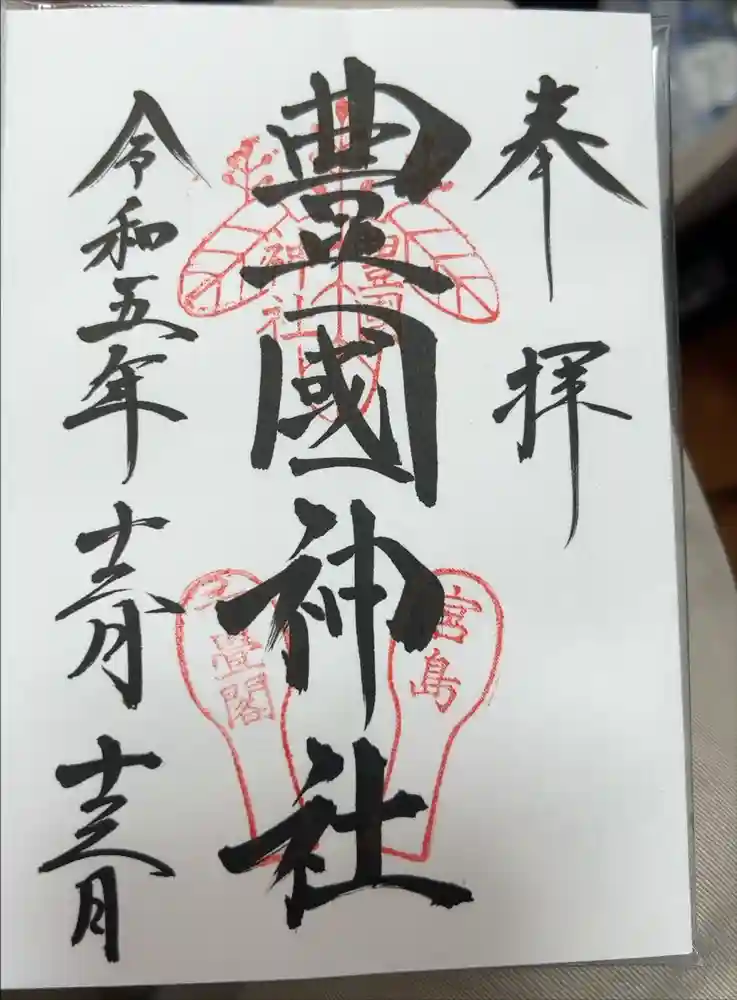 奉拝
豊國神社
豊国
神社
宮島
千畳閣
令和五年十二月